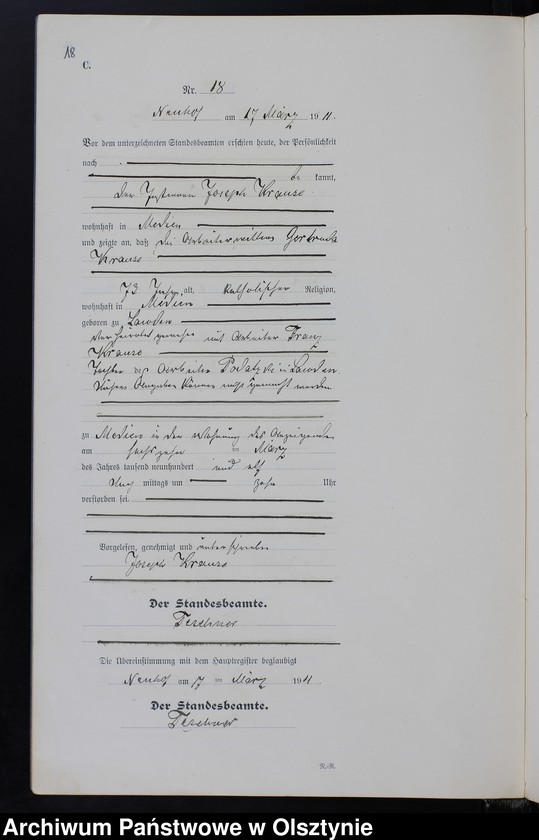 18
C.
Nr. 18
Neuhof am 17 März 1911.
Vor dem unterzeichneten Standesbeamten erschien heute, der Persönlichkeit
nach
be kannt,
der Joseph Krause
wohnhaft in Medien
und zeigte an, daß die Arbeiterwittwe Gertrude
Krause
73 Jahre alt, katholischer Religion,
wohnhaft in Medien
geboren zu Lawden
verheirathet gewesen mit Arbeiter Franz
Krause
Tochter des Arbeiter in Lawden.
Nähere Angaben können nicht gemacht werden
zu Medien in der Wohnung des Anzeigenden
am sechszehn ten März
des Jahres tausend neunhundert und elf
mittags um zehn Uhr
verstorben sei.
Vorgelesen, genehmigt und unterschrieben
Joseph Krause
Der Standesbeamte.
Teschner
Die Übereinstimmung mit dem Hauptregister beglaubigt
Neuhof am 17 ten März 1911
Der Standesbeamte.
Teschner
Archiwum Państwowe w Olsztynie